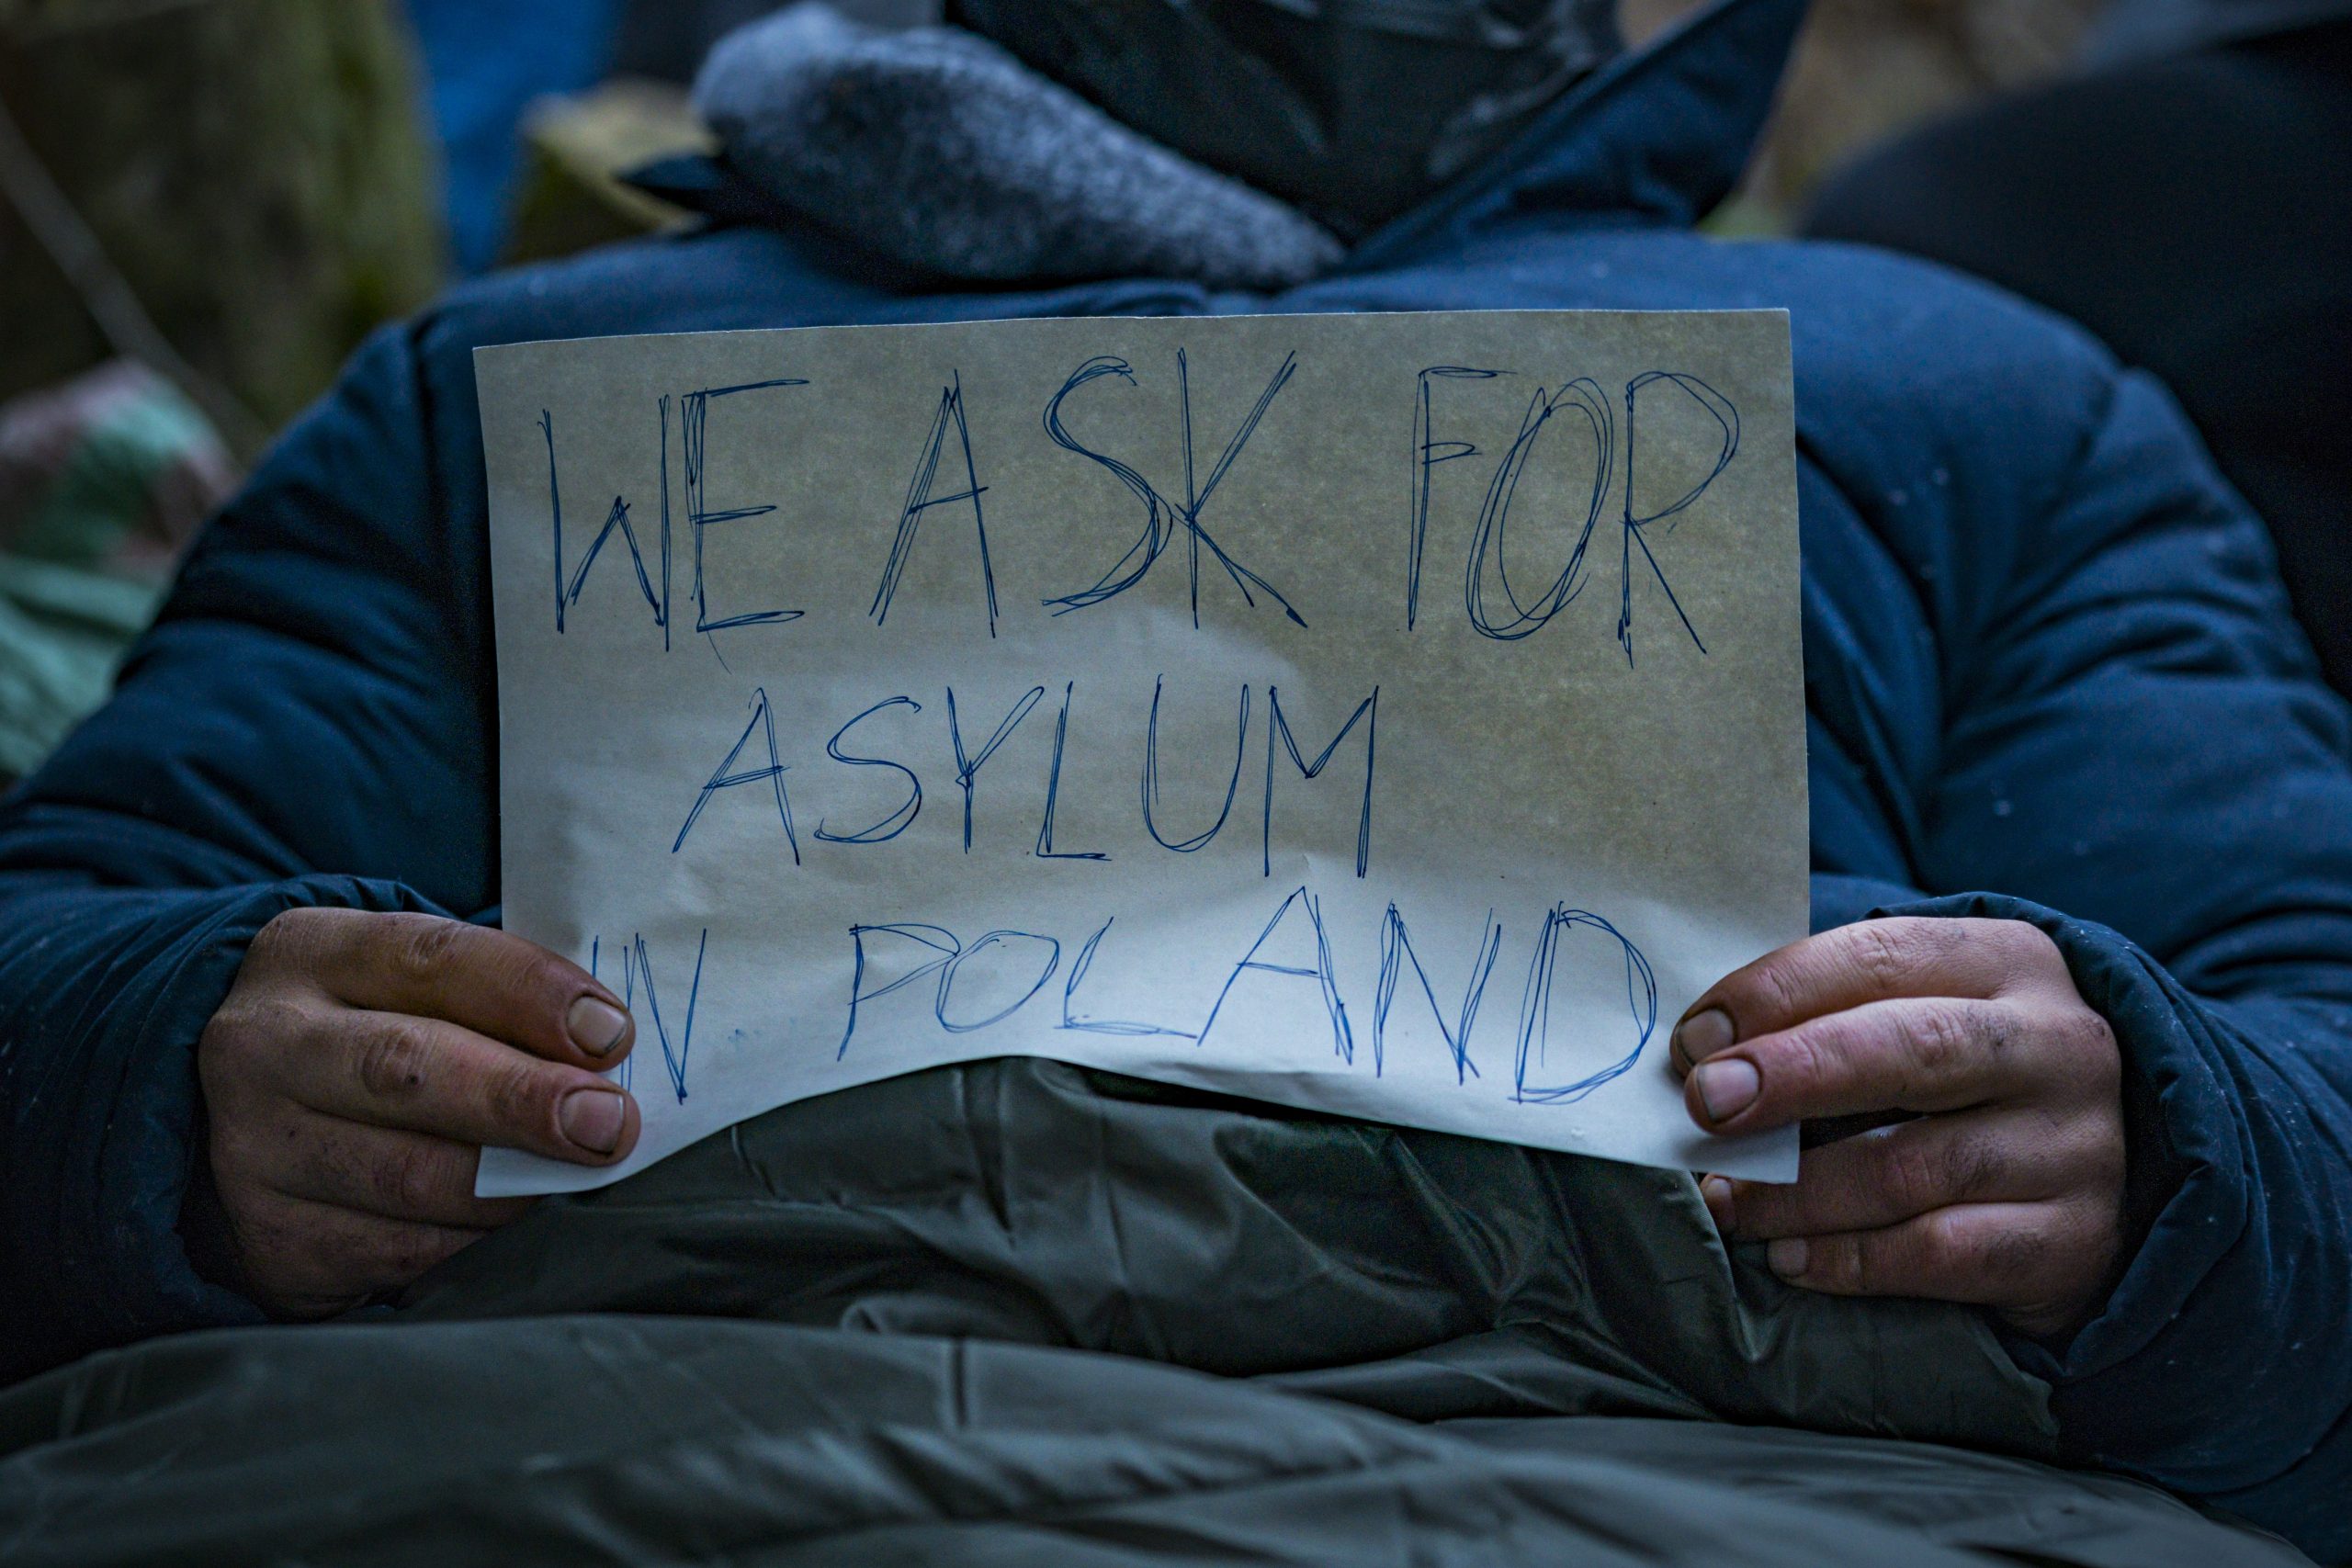 WE ASK FOR
ASYLUM
IN POLAND